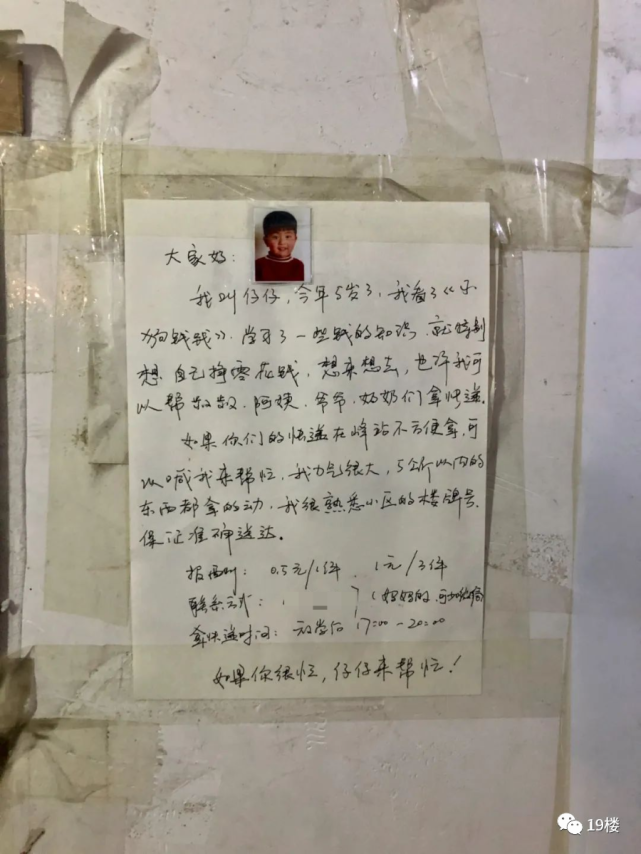 大家好：
我叫仔仔，今年5岁了，我看了《小
狗钱钱》，学习了一些钱的知识，就特别
想自己挣零花钱，想来想去，也许我可
以帮叔叔、阿姨、爷爷、奶奶们拿快递。
如果你们的快递在蜂站不方便拿，可
以喊我来帮忙，我力气很大，5公斤以内的
东西都拿的动，我很熟悉小区的楼牌号，
保证准确送达。
报酬： 0.5元/1件、1元/3件
联系方式： （妈妈的，可加微信）
拿快递时间：放学后 17:00-20:00
如果你很忙，仔仔来帮忙！
19楼